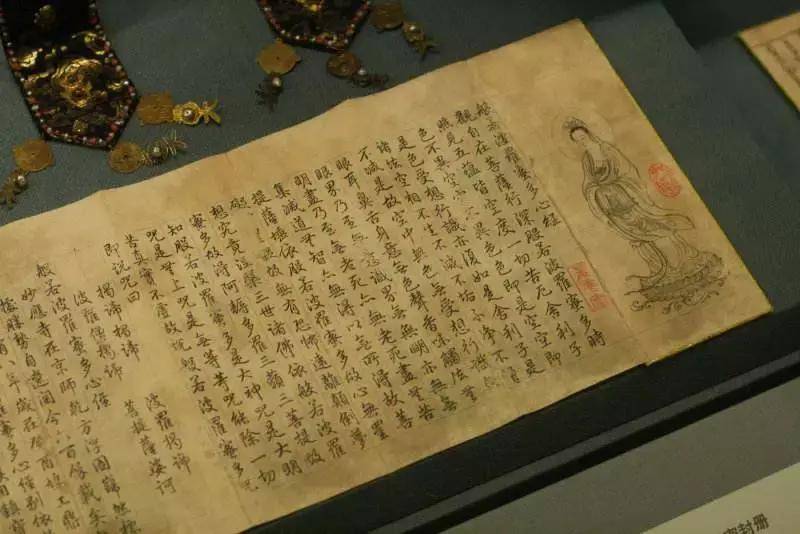 般若波羅蜜多心經
觀自在菩薩行深般若波羅蜜多時
照見五蘊皆空度一切苦厄舍利子
色不異空空不異色色即是空空即
是色受想行識亦復如是舍利子是
諸法空相不生不滅不垢不淨不增
不減是故空中無色無受想行識無
眼耳鼻舌身意無色聲香味觸法無
眼界乃至無意識界無無明亦無無
明盡乃至無老死亦無老死盡無苦
集滅道無智亦無得以無所得故菩
提薩埵依般若波羅蜜多故心無罣
礙無罣礙故無有恐怖遠離顛倒夢
想究竟涅槃三世諸佛依般若波羅
蜜多故得阿耨多羅三藐三菩提故
知般若波羅蜜多是大神咒是大明
咒是無上咒是無等等咒能除一切
苦真實不虛故說般若波羅蜜多咒
即說咒曰
揭諦揭諦 波羅揭諦
波羅僧揭諦 菩提薩婆訶
般若波羅蜜多心經
妙應寺在京師乾方浮圖巋然標
自遼迄今六百餘載矣
封册